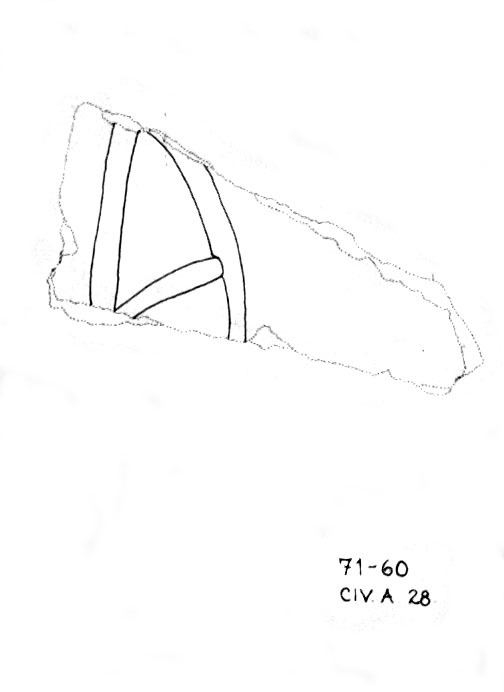 71-60
CIV. A 28